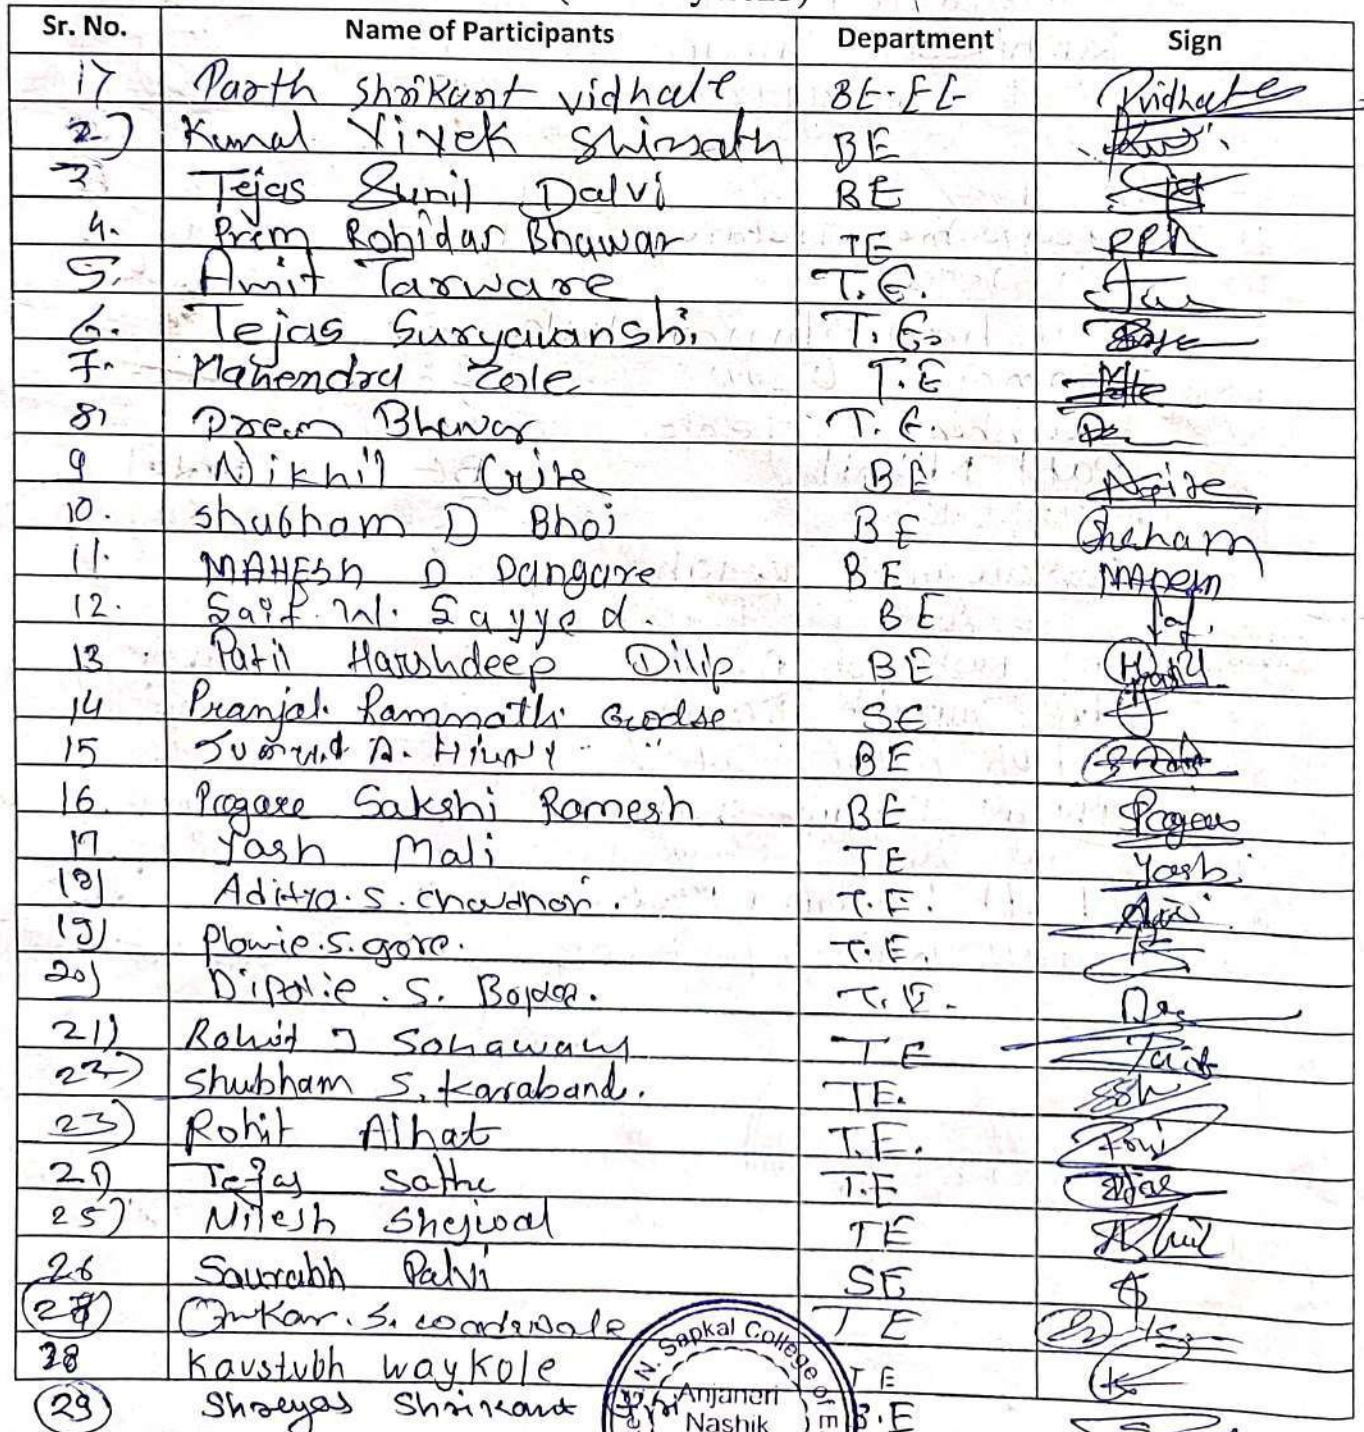 Sr. No. Name of Participants Department Sign
1) Parth Shrikant vidhate BE-EE Pvidhate
2) Kunal Vivek Shirsath BE
3 Tejas Sunil Dalvi BE
4. Prem Rohidas Bhawar TE PRB
5. Amit Tarware T.E.
6. Tejas Suryavanshi. T.E.
7. Mahendra Zole T.E
8) Prem Bhavar T.E.
9 Nikhil Gite BE
10. Shubham D Bhoi BE
11. MAHESh D Dangare BE
12. Saif. M. Sayyed. BE
13 Patil Harshdeep Dilip BE
14 Pranjal. Ramnath Godse SE
15 BE
16. Pagare Sakshi Ramesh BE Pagare
17 Yash Mali TE Yash
18) Aditya. S. chaudhari. T.E.
19) S. gore. T.E.
20) Dipalie. S. T.E.
21) Rohit J Sonawane TE
22) Shubham S. Karaband. TE.
23) Rohit Alhat T.E.
24) Tejas Sathe T.E
25) Nilesh Shejwal TE
26 Saurabh Palvi SE
27 Omkar. S. TE
28 Kaustubh waykole TE
29 Shreyas Shrikant B.E
N. Sapkal College of
Anjaneri
Nashik